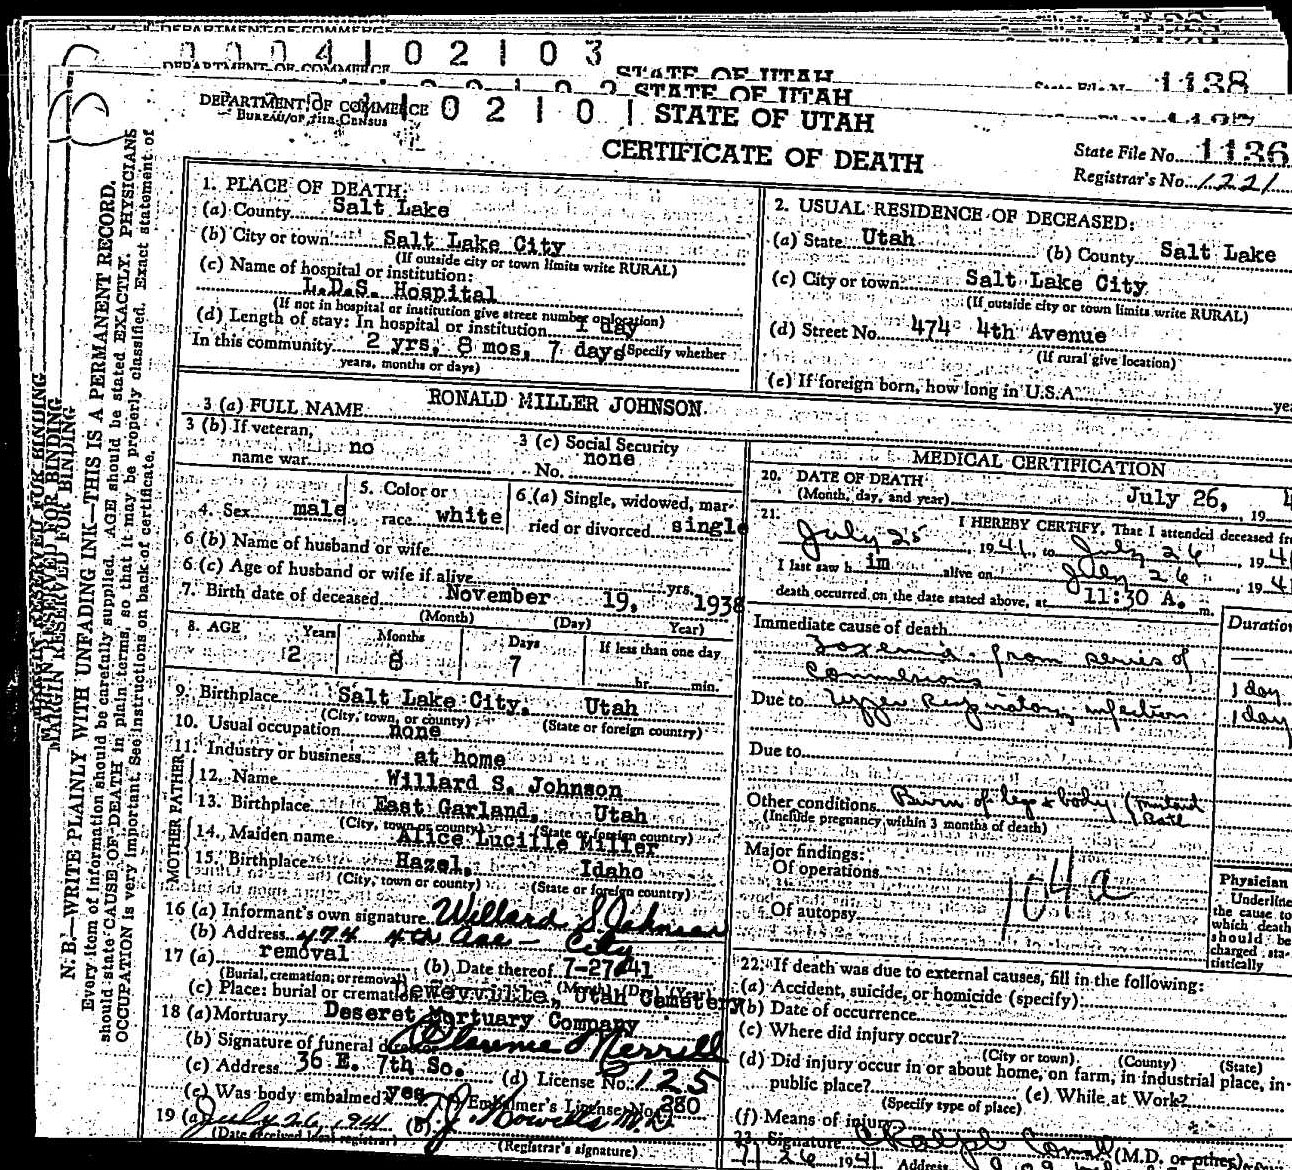 DEPARTMENT OF COMMERCE
0 0 0 4 1 0 2 1 0 3
DEPARTMENT OF COMMERCE
STATE OF UTAH
State File No. 1138
STATE OF UTAH
DEPARTMENT OF COMMERCE
BUREAU OF THE CENSUS
1 0 2 1 0 1
STATE OF UTAH
CERTIFICATE OF DEATH
State File No. 1136
Registrar's No. 1221
MARGIN RESERVED FOR BINDING
N. B.—WRITE PLAINLY WITH UNFADING INK—THIS IS A PERMANENT RECORD.
Every item of information should be carefully supplied. AGE should be stated EXACTLY. PHYSICIANS
should state CAUSE OF DEATH in plain terms, so that it may be properly classified. Exact statement of
OCCUPATION is very important. See instructions on back of certificate.
1. PLACE OF DEATH:
(a) County Salt Lake
(b) City or town Salt Lake City
(If outside city or town limits write RURAL)
(c) Name of hospital or institution:
L.D.S. Hospital
(If not in hospital or institution give street number or location)
(d) Length of stay: In hospital or institution 1 day
In this community 2 yrs, 8 mos, 7 days (Specify whether
years, months or days)
2. USUAL RESIDENCE OF DECEASED:
(a) State Utah (b) County Salt Lake
(c) City or town Salt Lake City
(If outside city or town limits write RURAL)
(d) Street No. 474 4th Avenue
(If rural give location)
(e) If foreign born, how long in U.S.A.
3 (a) FULL NAME RONALD MILLER JOHNSON
3 (b) If veteran, no
name war
3 (c) Social Security
No. none
4. Sex male
5. Color or
race white
6 (a) Single, widowed, mar-
ried or divorced single
6 (b) Name of husband or wife
6 (c) Age of husband or wife if alive yrs.
7. Birth date of deceased November 19, 1938
(Month) (Day) Year)
8. AGE Years Months Days If less than one day
2 8 7 hr. min.
9. Birthplace Salt Lake City, Utah
(City, town, or county) (State or foreign country)
10. Usual occupation none
11. Industry or business at home
FATHER
12. Name Willard S. Johnson
13. Birthplace East Garland, Utah
(City, town or county) (State or foreign country)
MOTHER
14. Maiden name Alice Lucille Miller
15. Birthplace Hazel, Idaho
(City, town or county) (State or foreign country)
16 (a) Informant's own signature Willard S Johnson
(b) Address 474 4th Ave - City
17 (a) removal (b) Date thereof 7-27-41
(Burial, cremation, or removal) (Month) (Day) (Year)
(c) Place: burial or cremation Deweyville, Utah Cemetery
18 (a) Mortuary Deseret Mortuary Company
(b) Signature of funeral director Clarence Merrill
(c) Address 36 E. 7th So. (d) License No. 125
(e) Was body embalmed? yes Embalmer's License No. 280
19 (a) July 26, 1941 (b) T. J. Howells M.D
(Date received local registrar) (Registrar's signature)
MEDICAL CERTIFICATION
20. DATE OF DEATH
(Month, day, and year) July 26, 19 4
21. I HEREBY CERTIFY, That I attended deceased fr
July 25, 1941, to July 26, 194
I last saw h im alive on July 26, 194
death occurred on the date stated above, at 11:30 A. m.
Duration
Immediate cause of death
Toxemia - from series of
Convulsions 1 day
Due to Upper Respiratory infection 1 day
Due to
Other conditions Burn of legs & body (Mustard
(Include pregnancy within 3 months of death) Bath
Major findings:
Of operations
104 a
Of autopsy
Physician
Underline
the cause to
which death
should be
charged sta-
tistically
22. If death was due to external causes, fill in the following:
(a) Accident, suicide, or homicide (specify):
(b) Date of occurrence
(c) Where did injury occur?
(City or town) (County) (State)
(d) Did injury occur in or about home, on farm, in industrial place, in
public place? (e) While at Work?
(Specify type of place)
(f) Means of injury
23. Signature Ralph (M.D. or other)
7/26 1941 Address